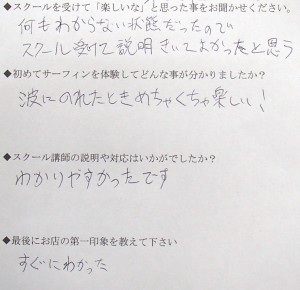 ◆スクールを受けて「楽しいな」と思った事をお聞かせください。
何もわからない状態だったので
スクール受けて説明きいてよかったと思う
◆初めてサーフィンを体験してどんな事が分かりましたか?
波にのれたときめちゃくちゃ楽しい!
◆スクール講師の説明や対応はいかがでしたか?
わかりやすかったです
◆最後にお店の第一印象を教えて下さい
すぐにわかった